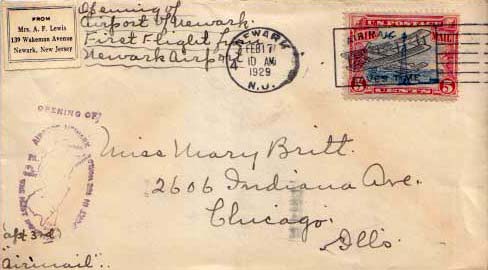 FROM
Mrs. A. F. Lewis
139 Wakeman Avenue
Newark, New Jersey
Opening of
Airport of Newark.
First Flight
Newark Airport
NEWARK
FEB 17
10 AM
1929
N.J.
U.S. POSTAGE
AIR MAIL
5 CENTS 5
OPENING OF
Miss Mary Britt.
2606 Indiana Ave.
Chicago.
Ills.
apt 3rd
"airmail"